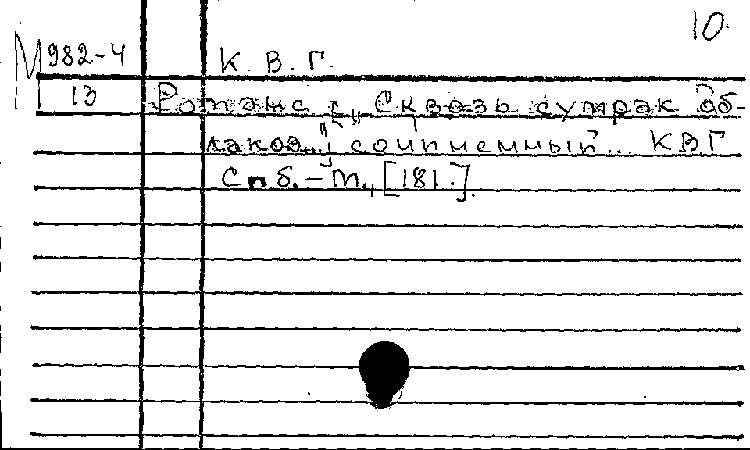 10.
М 982-4 К. В. Г.
13 Романс „Сквозь сумрак об-
лаков..." сочиненный .. К.В.Г
Спб. – М., [181.].